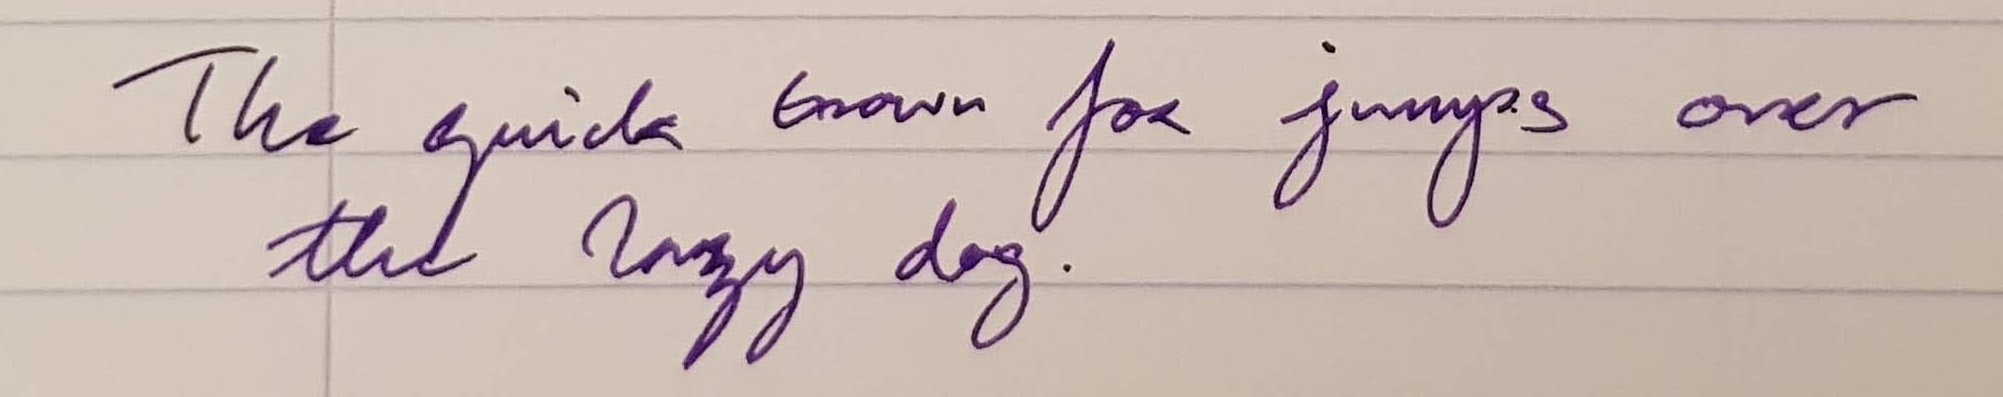 The quick brown fox jumps over
the lazy dog.